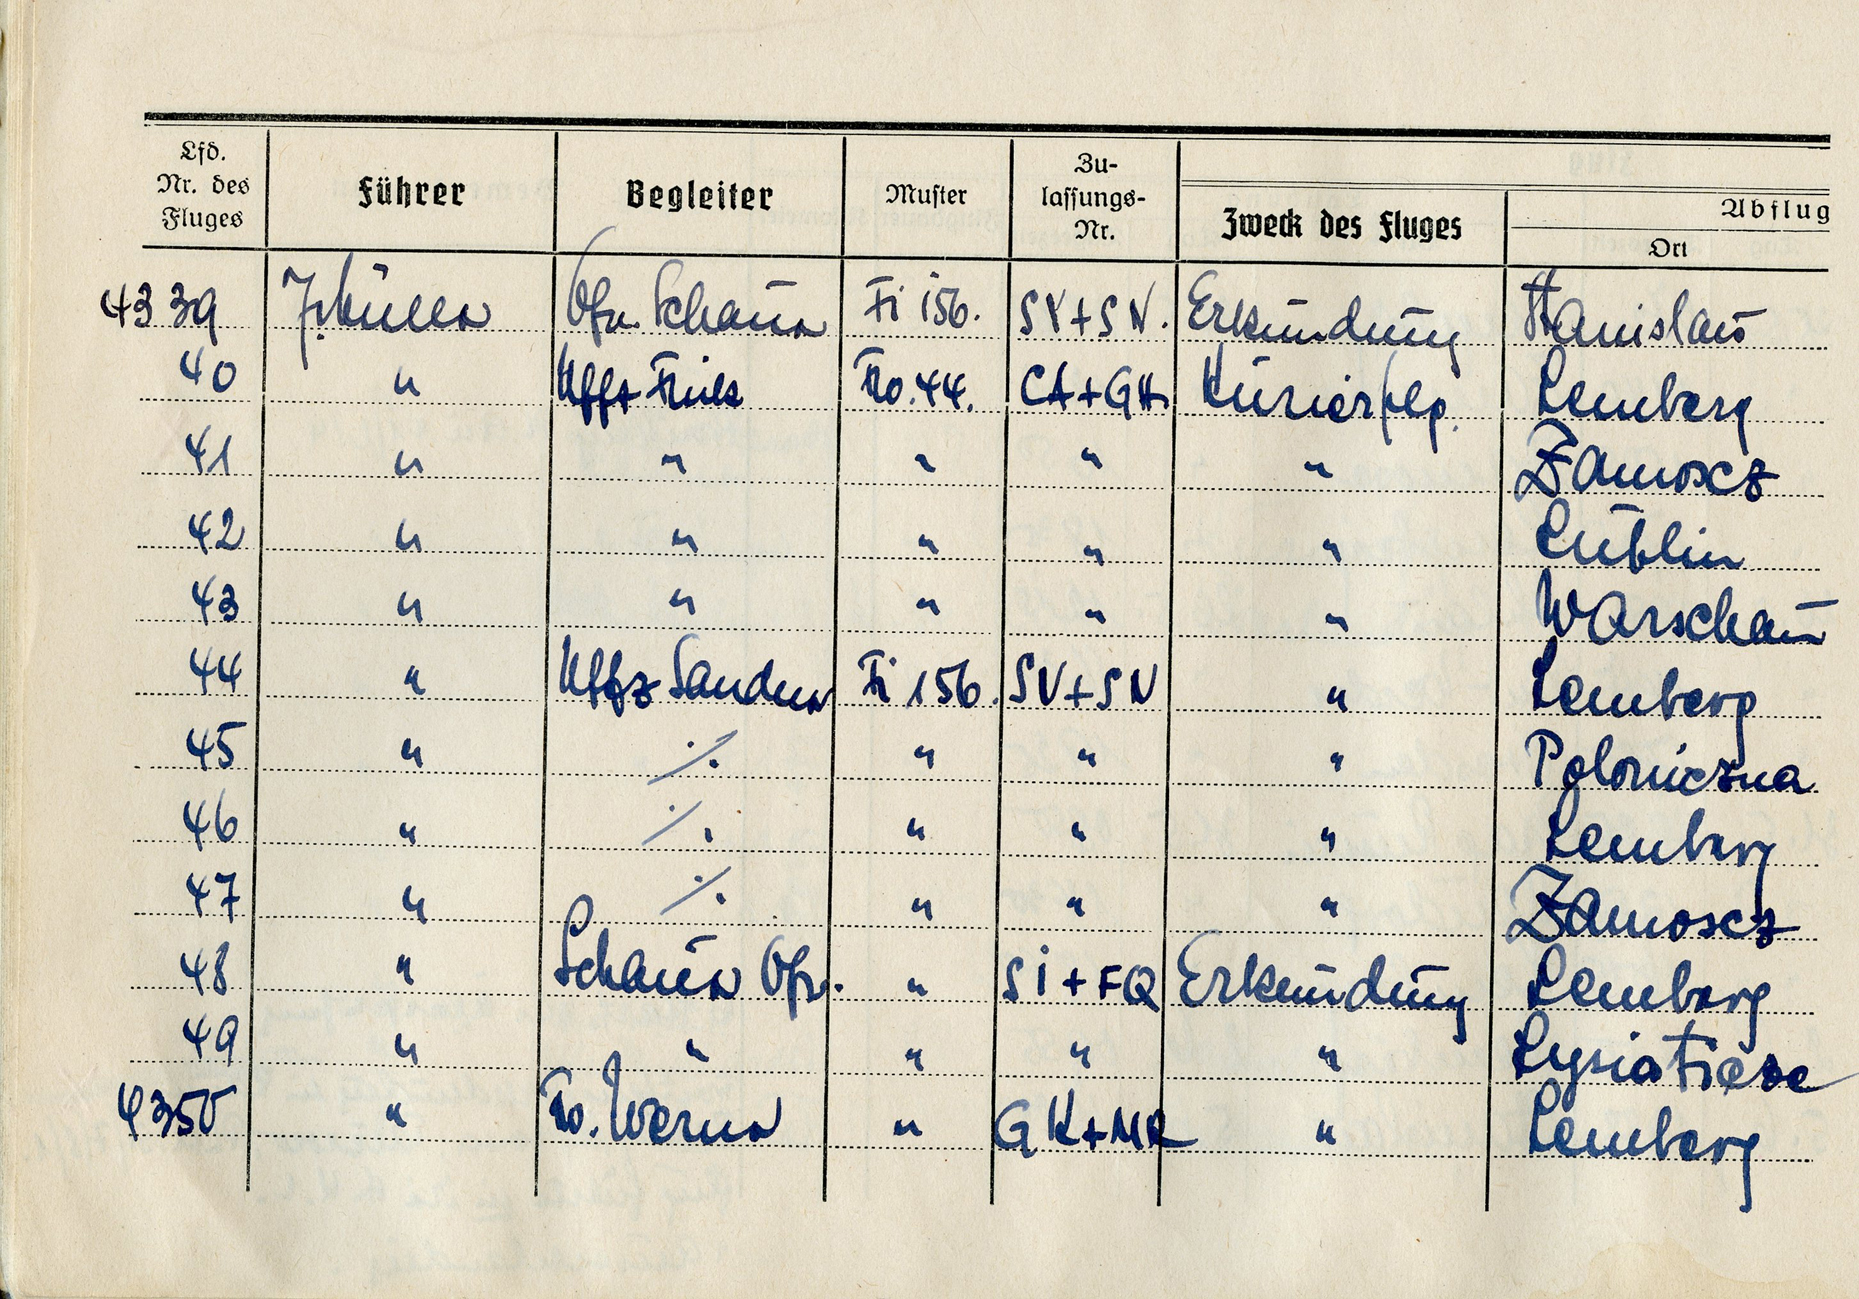 Lfd. Nr. des Fluges Führer Begleiter Muster Zu-lassungs-Nr. Zweck des Fluges Abflug Ort
4339 Müller Ofw. Schaur Fi 156. SV+SN. Erkundung Stanislau
40 " Uffz Fo. 44. CA+GH Kurierflg. Lemberg
41 " " " " " Zamoscz
42 " " " " " Lublin
43 " " " " " Warschau
44 " Uffz Sander Fi 156. SV+SN " Lemberg
45 " ./. " " " Poloniczna
46 " ./. " " " Lemberg
47 " ./. " " " Zamoscz
48 " Schaur Ofw. " SI+FQ Erkundung Lemberg
49 " " " " "
4350 " Werner " GK+MR " Lemberg